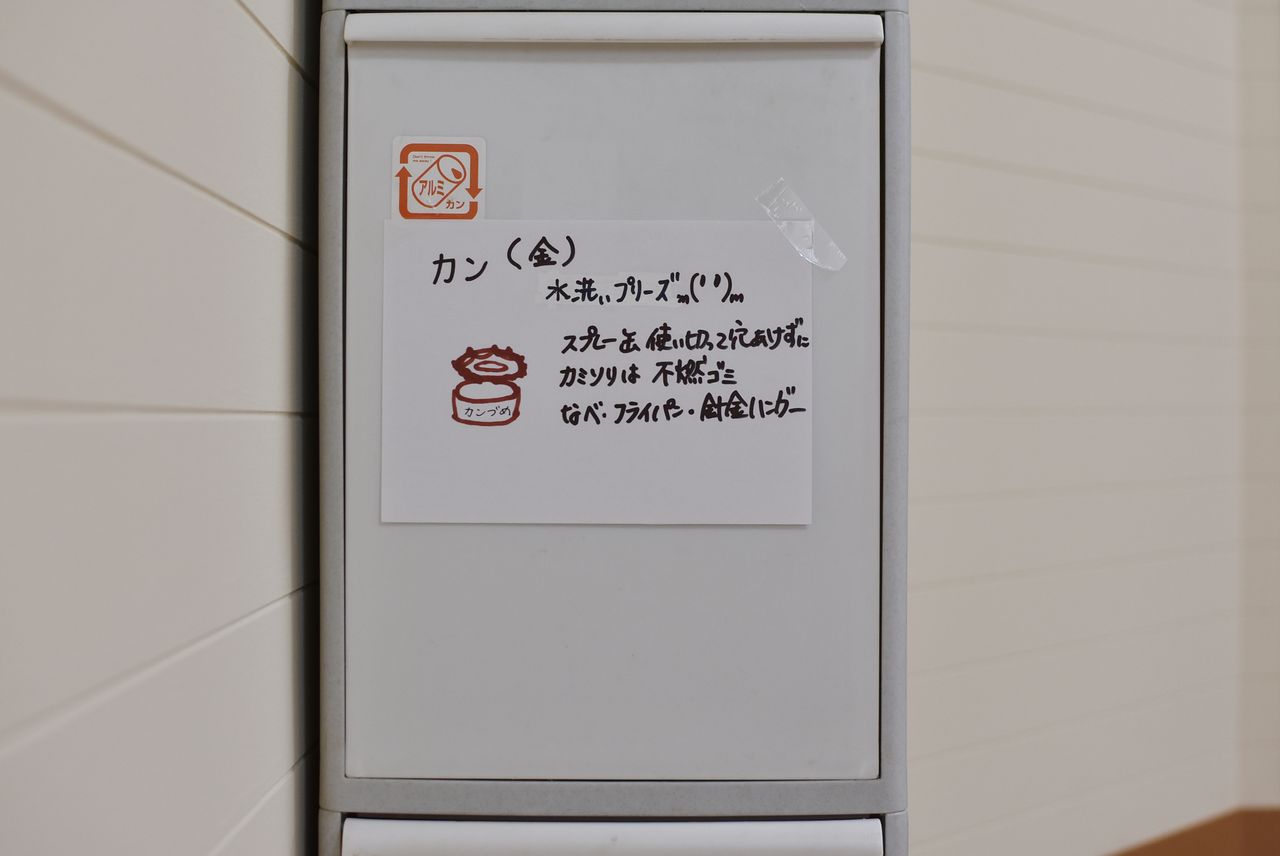 アルミ
カン
カン (金)
水洗いプリーズm('')m
スプレー缶 使い切って穴あけずに
カミソリは 不燃ゴミ
なべ・フライパン・針金ハンガー
カンづめ